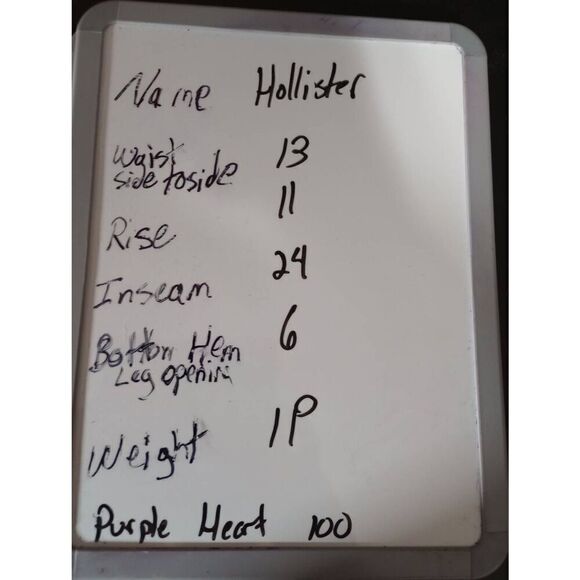 Name Hollister
Waist 13
side to side
Rise 11
Inseam 24
Bottom Hem 6
Leg openin
Weight 1P
Purple Heart 100